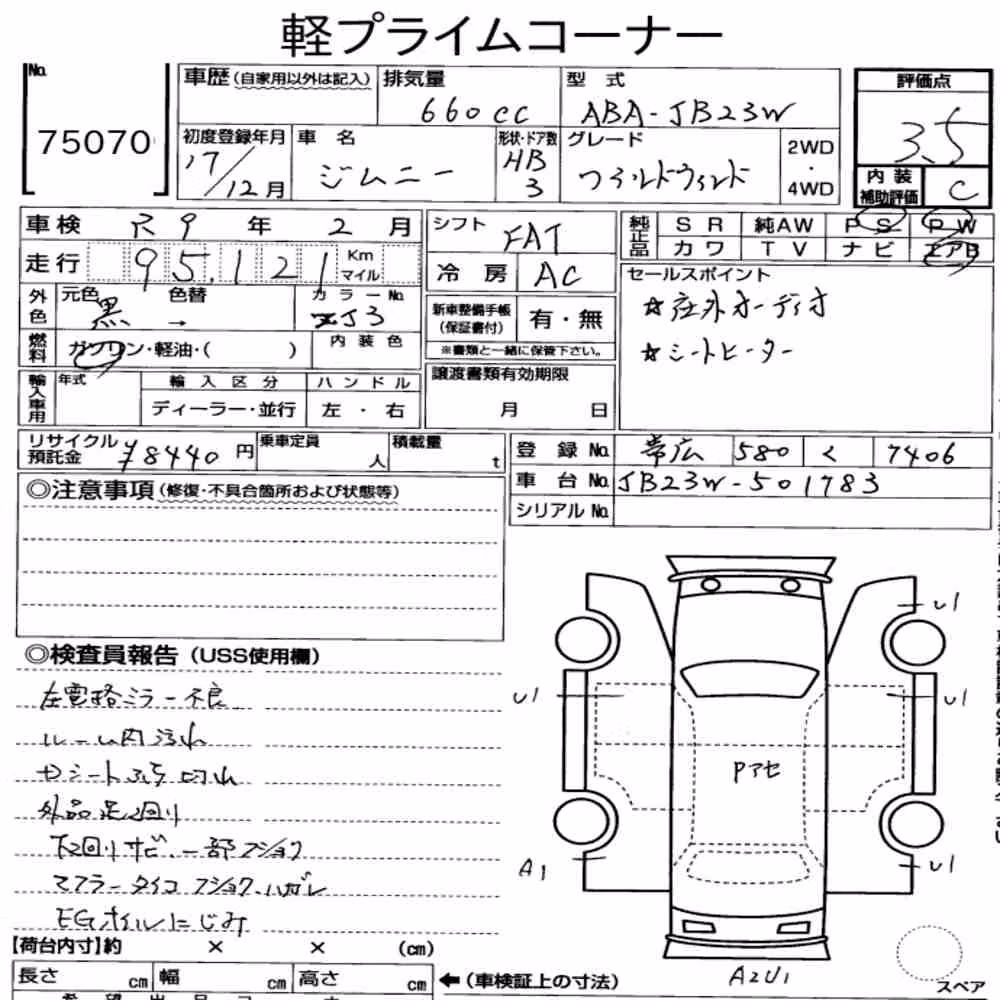 軽プライムコーナー
No. 75070
車歴(自家用以外は記入) 排気量 660cc 型式 ABA-JB23W
初度登録年月 17/12月 車名 ジムニー 形状・ドア数 HB 3 グレード ワイルドウィンド 2WD・4WD
評価点 3.5
内装補助評価 C
車検 R9年2月
走行 95,121 Km マイル
外色 元色 黒 色替 → カラーNo. ZJ3
燃料 ガソリン・軽油・( ) 内装色
輸入車用 年式 輸入区分 ディーラー・並行 ハンドル 左・右
シフト FAT
冷房 AC
新車整備手帳(保証書付) 有・無
※書類と一緒に保管下さい。
譲渡書類有効期限
月 日
純正品 SR 純AW PS PW
カワ TV ナビ エアB
セールスポイント
☆社外オーディオ
☆シートヒーター
リサイクル預託金 ¥8440円 乗車定員 人 積載量 t
登録No. 帯広 580 く 7406
車台No. JB23W-501783
シリアルNo.
◎注意事項(修復・不具合箇所および状態等)
◎検査員報告(USS使用欄)
左電格ミラー不良
ルーム内汚れ
Dシート ふち切れ
外品足回り
下回りサビ、一部フショク
マフラータイコフショク、ハガレ
EGオイルにじみ
U1
U1
U1
Pアセ
A1
U1
A2U1
スペア
【荷台内寸】約 × × (cm)
長さ cm 幅 cm 高さ cm ←(車検証上の寸法)